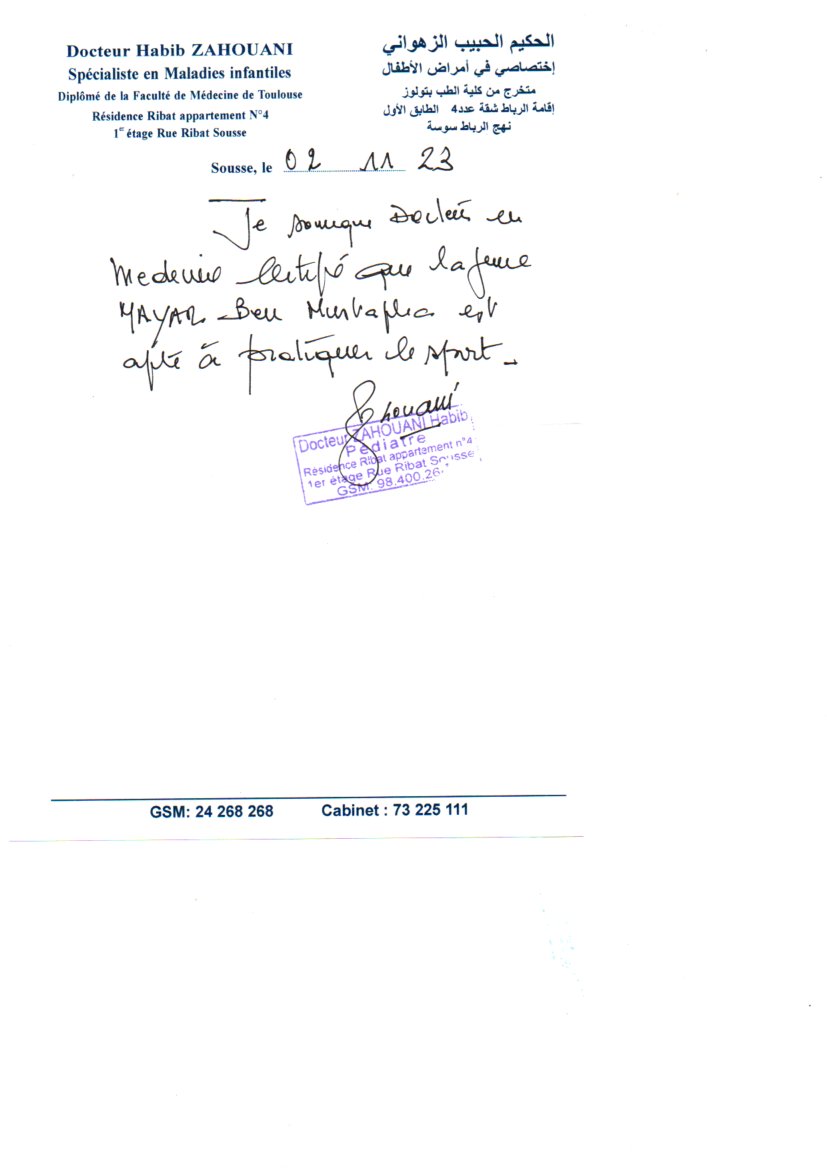 Docteur Habib ZAHOUANI
Spécialiste en Maladies infantiles
Diplômé de la Faculté de Médecine de Toulouse
Résidence Ribat appartement N°4
1er étage Rue Ribat Sousse
الحكيم الحبيب الزهواني
إختصاصي في أمراض الأطفال
متخرج من كلية الطب بتولوز
إقامة الرباط شقة عدد4 الطابق الأول
نهج الرباط سوسة
Sousse, le 02 11 23
Je Docteur en
Medecine Certifie que la jeune
MAYAR Ben Mustapha est
apte à pratiquer le sport -
Docteur ZAHOUANI Habib
Pédiatre
Résidence Ribat appartement n°4
1er étage Rue Ribat Sousse
GSM: 98.400.26
GSM: 24 268 268 Cabinet : 73 225 111